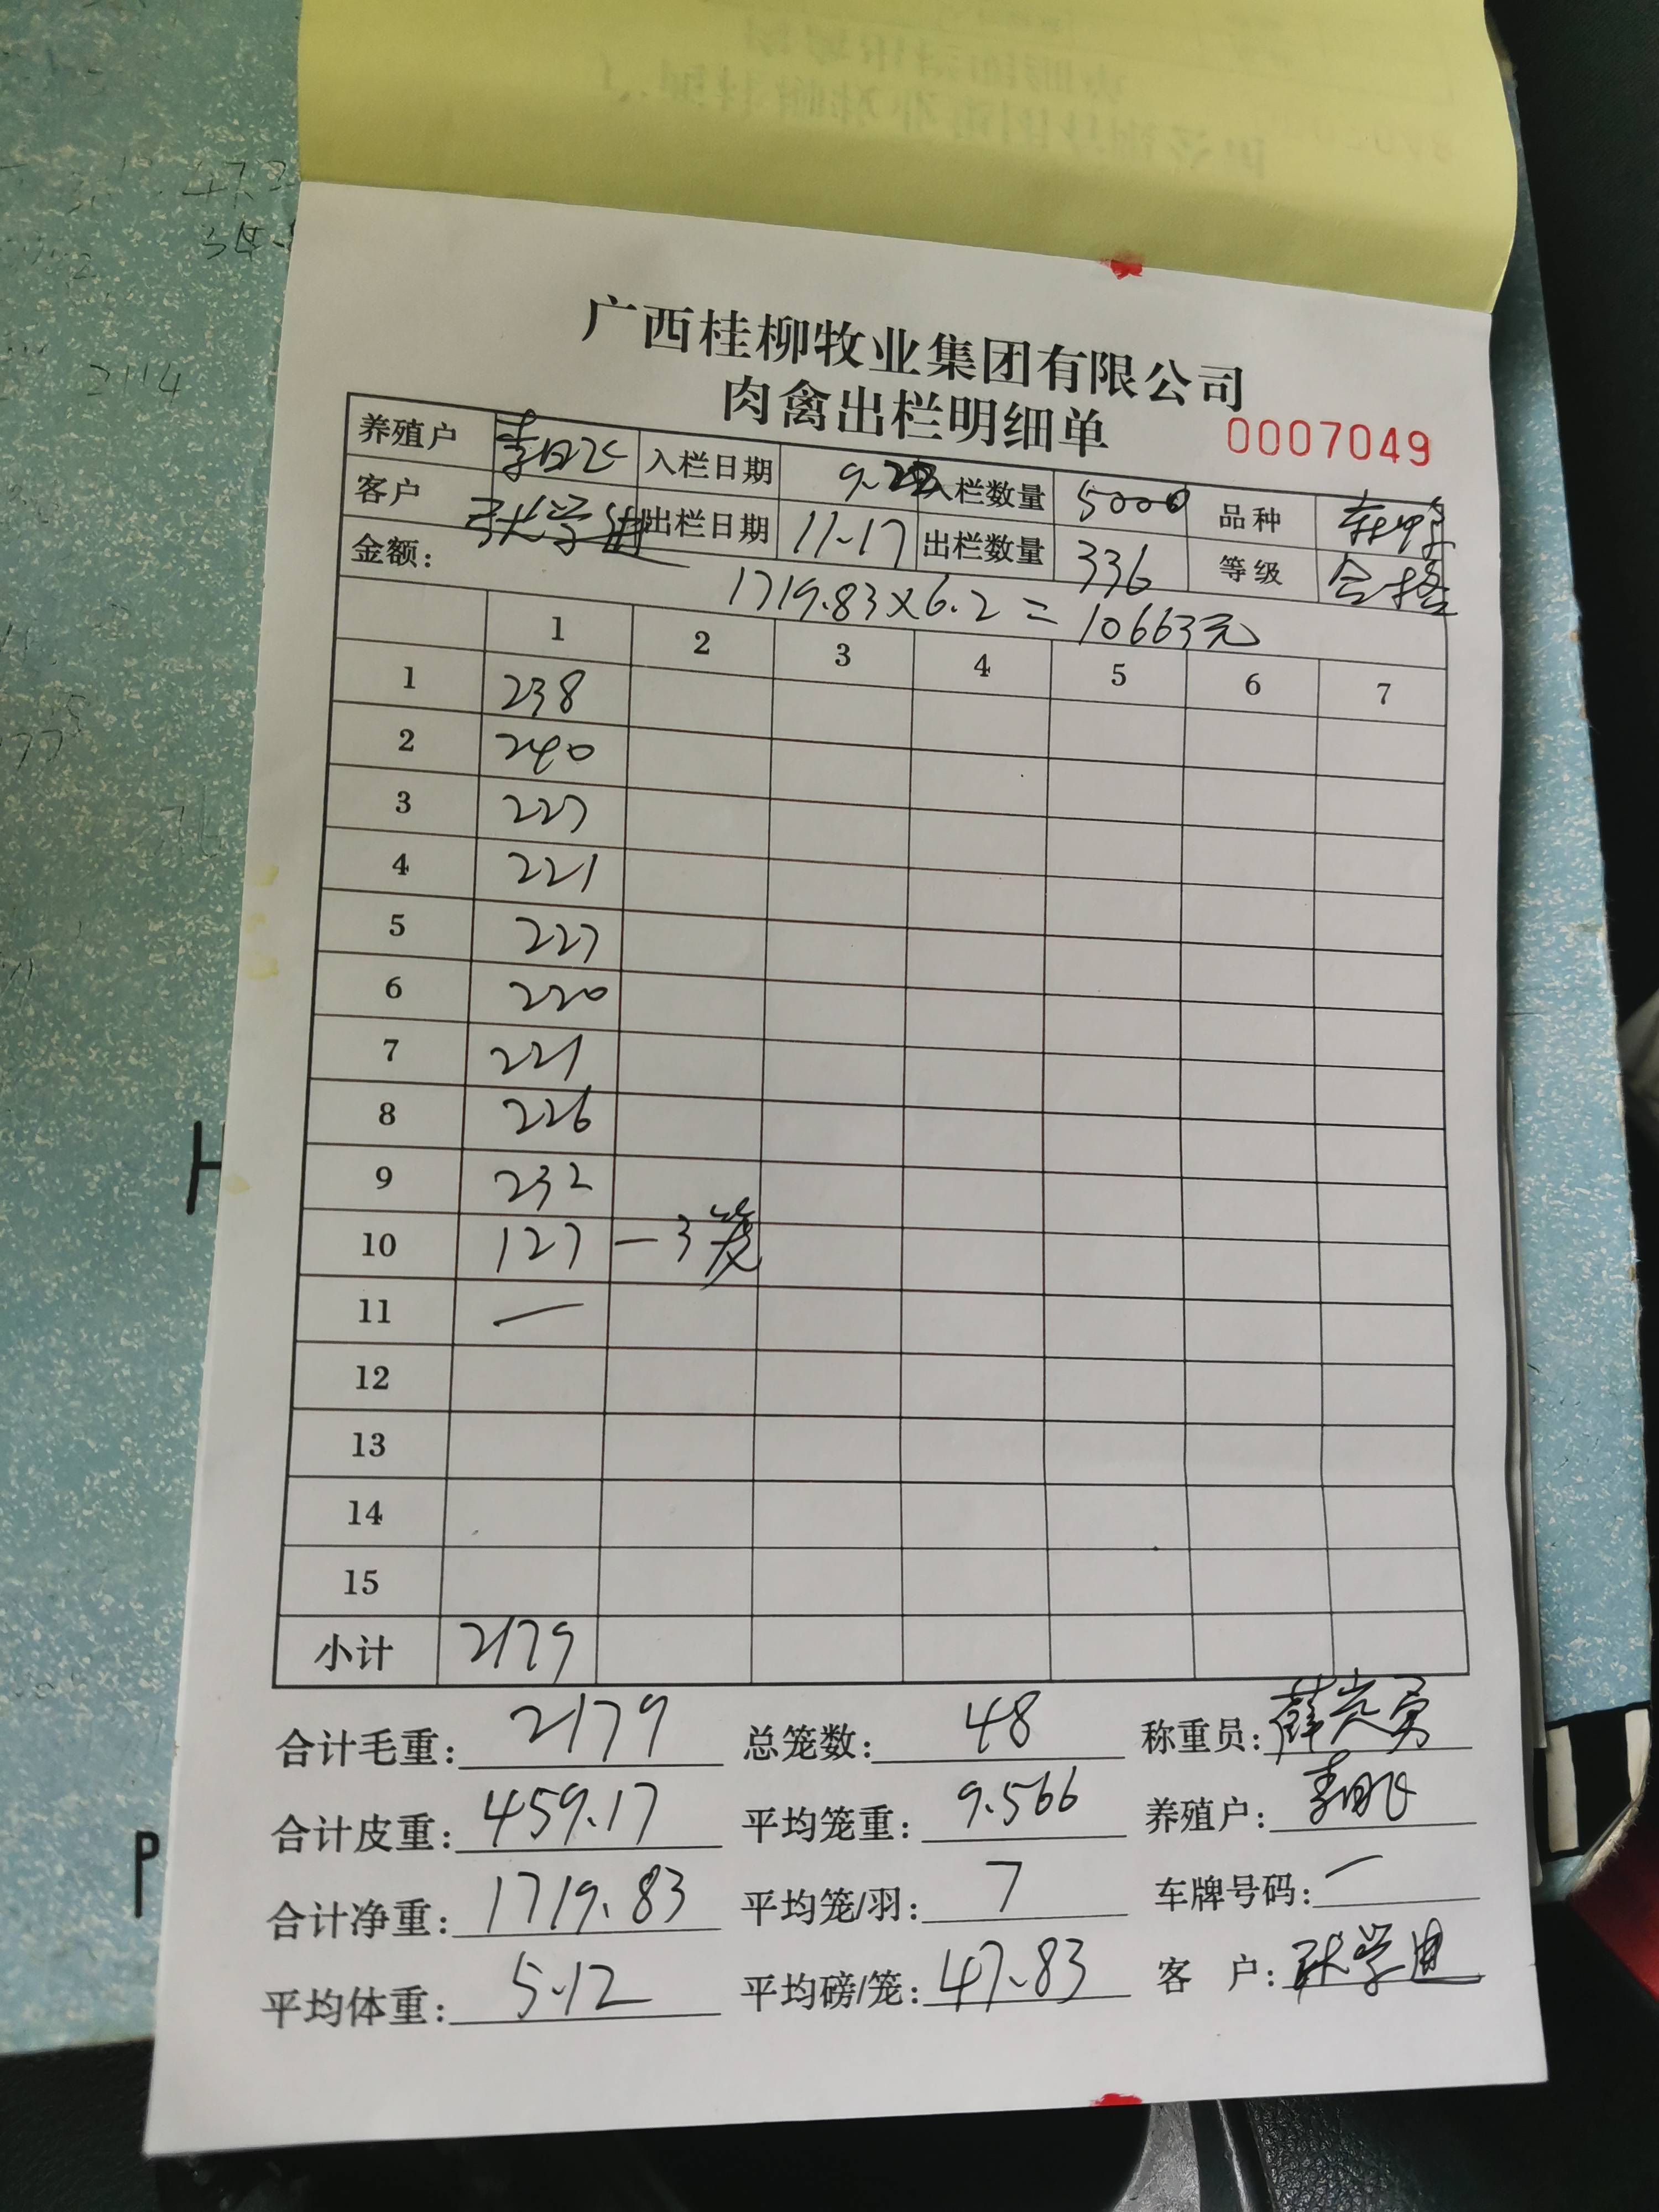 广西桂柳牧业集团有限公司
肉禽出栏明细单
0007049
养殖户 入栏日期 9.22 入栏数量 5000 品种
客户 张学迪 出栏日期 11-17 出栏数量 336 等级 合格
金额: 1719.83×6.2=10663元
1 2 3 4 5 6 7
1 238
2 240
3 227
4 221
5 227
6 220
7 221
8 226
9 232
10 127 — 3笼
11 —
12
13
14
15
小计 2179
合计毛重: 2179 总笼数: 48 称重员:
合计皮重: 459.17 平均笼重: 9.566 养殖户:
合计净重: 1719.83 平均笼/羽: 7 车牌号码: —
平均体重: 5.12 平均磅/笼: 47.83 客 户: 张学迪
2114
H
P